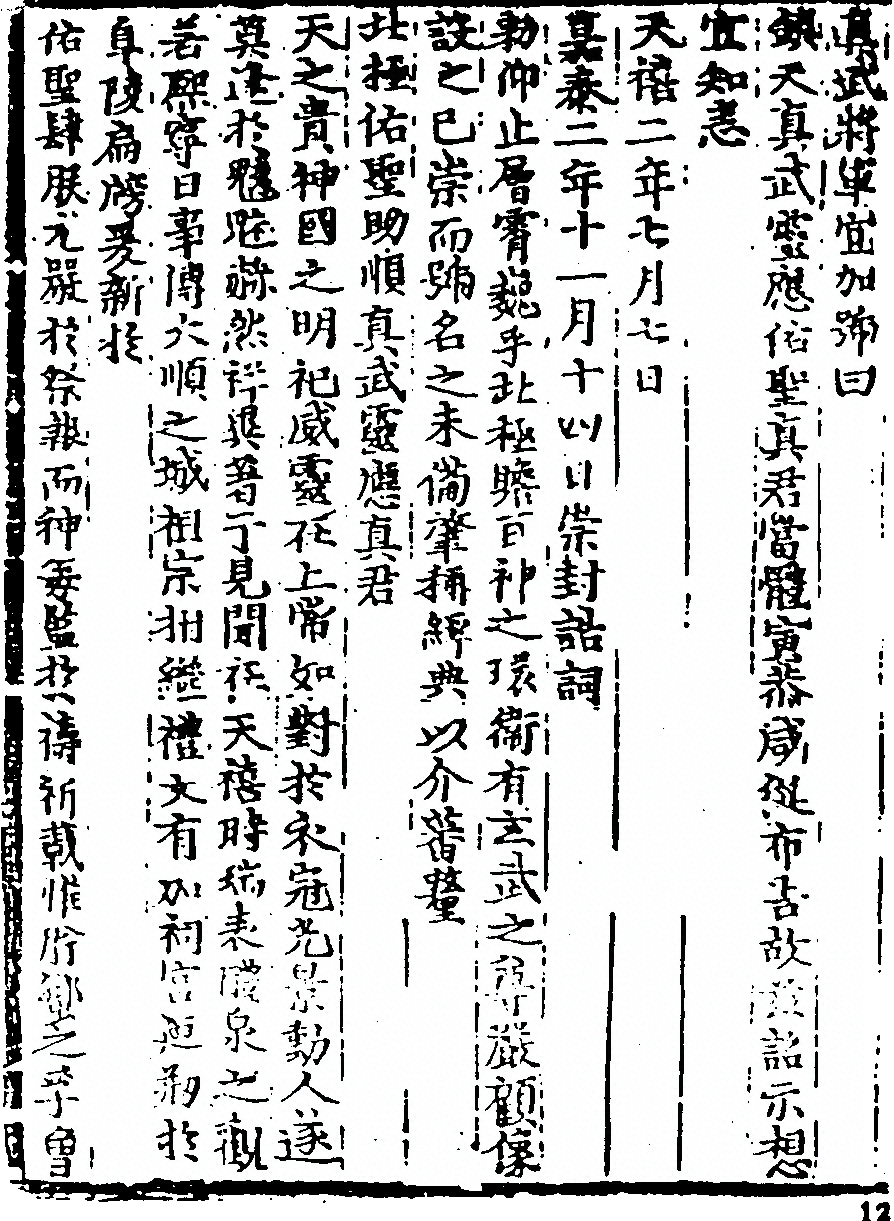 真武將軍宜加號曰
鎮天真武靈應佑聖真君當體寅恭咸從布告故茲詔示想
宜知悉
天禧二年七月七日
嘉泰二年十一月十四日崇封誥詞
勅仰止層霄巍乎北極隮百神之環衛有玄武之尊嚴顧像
設之已崇而號名之未備肇稱縟典以介蕃釐
北極佑聖助順真武靈應真君
天之貴神國之明祀威靈在上常如對於衣冠光景動人遂
莫逢於魑魅赫然祥異著于見聞在天禧時瑞表醴泉之觀
若熙寧日事傳大順之城祖宗相繼禮文有加祠宮迎刱於
阜陵扁牓爰新於
佑聖肆朕尤嚴於祭報而神每監於禱祈載惟肸蠁之孚曾
12